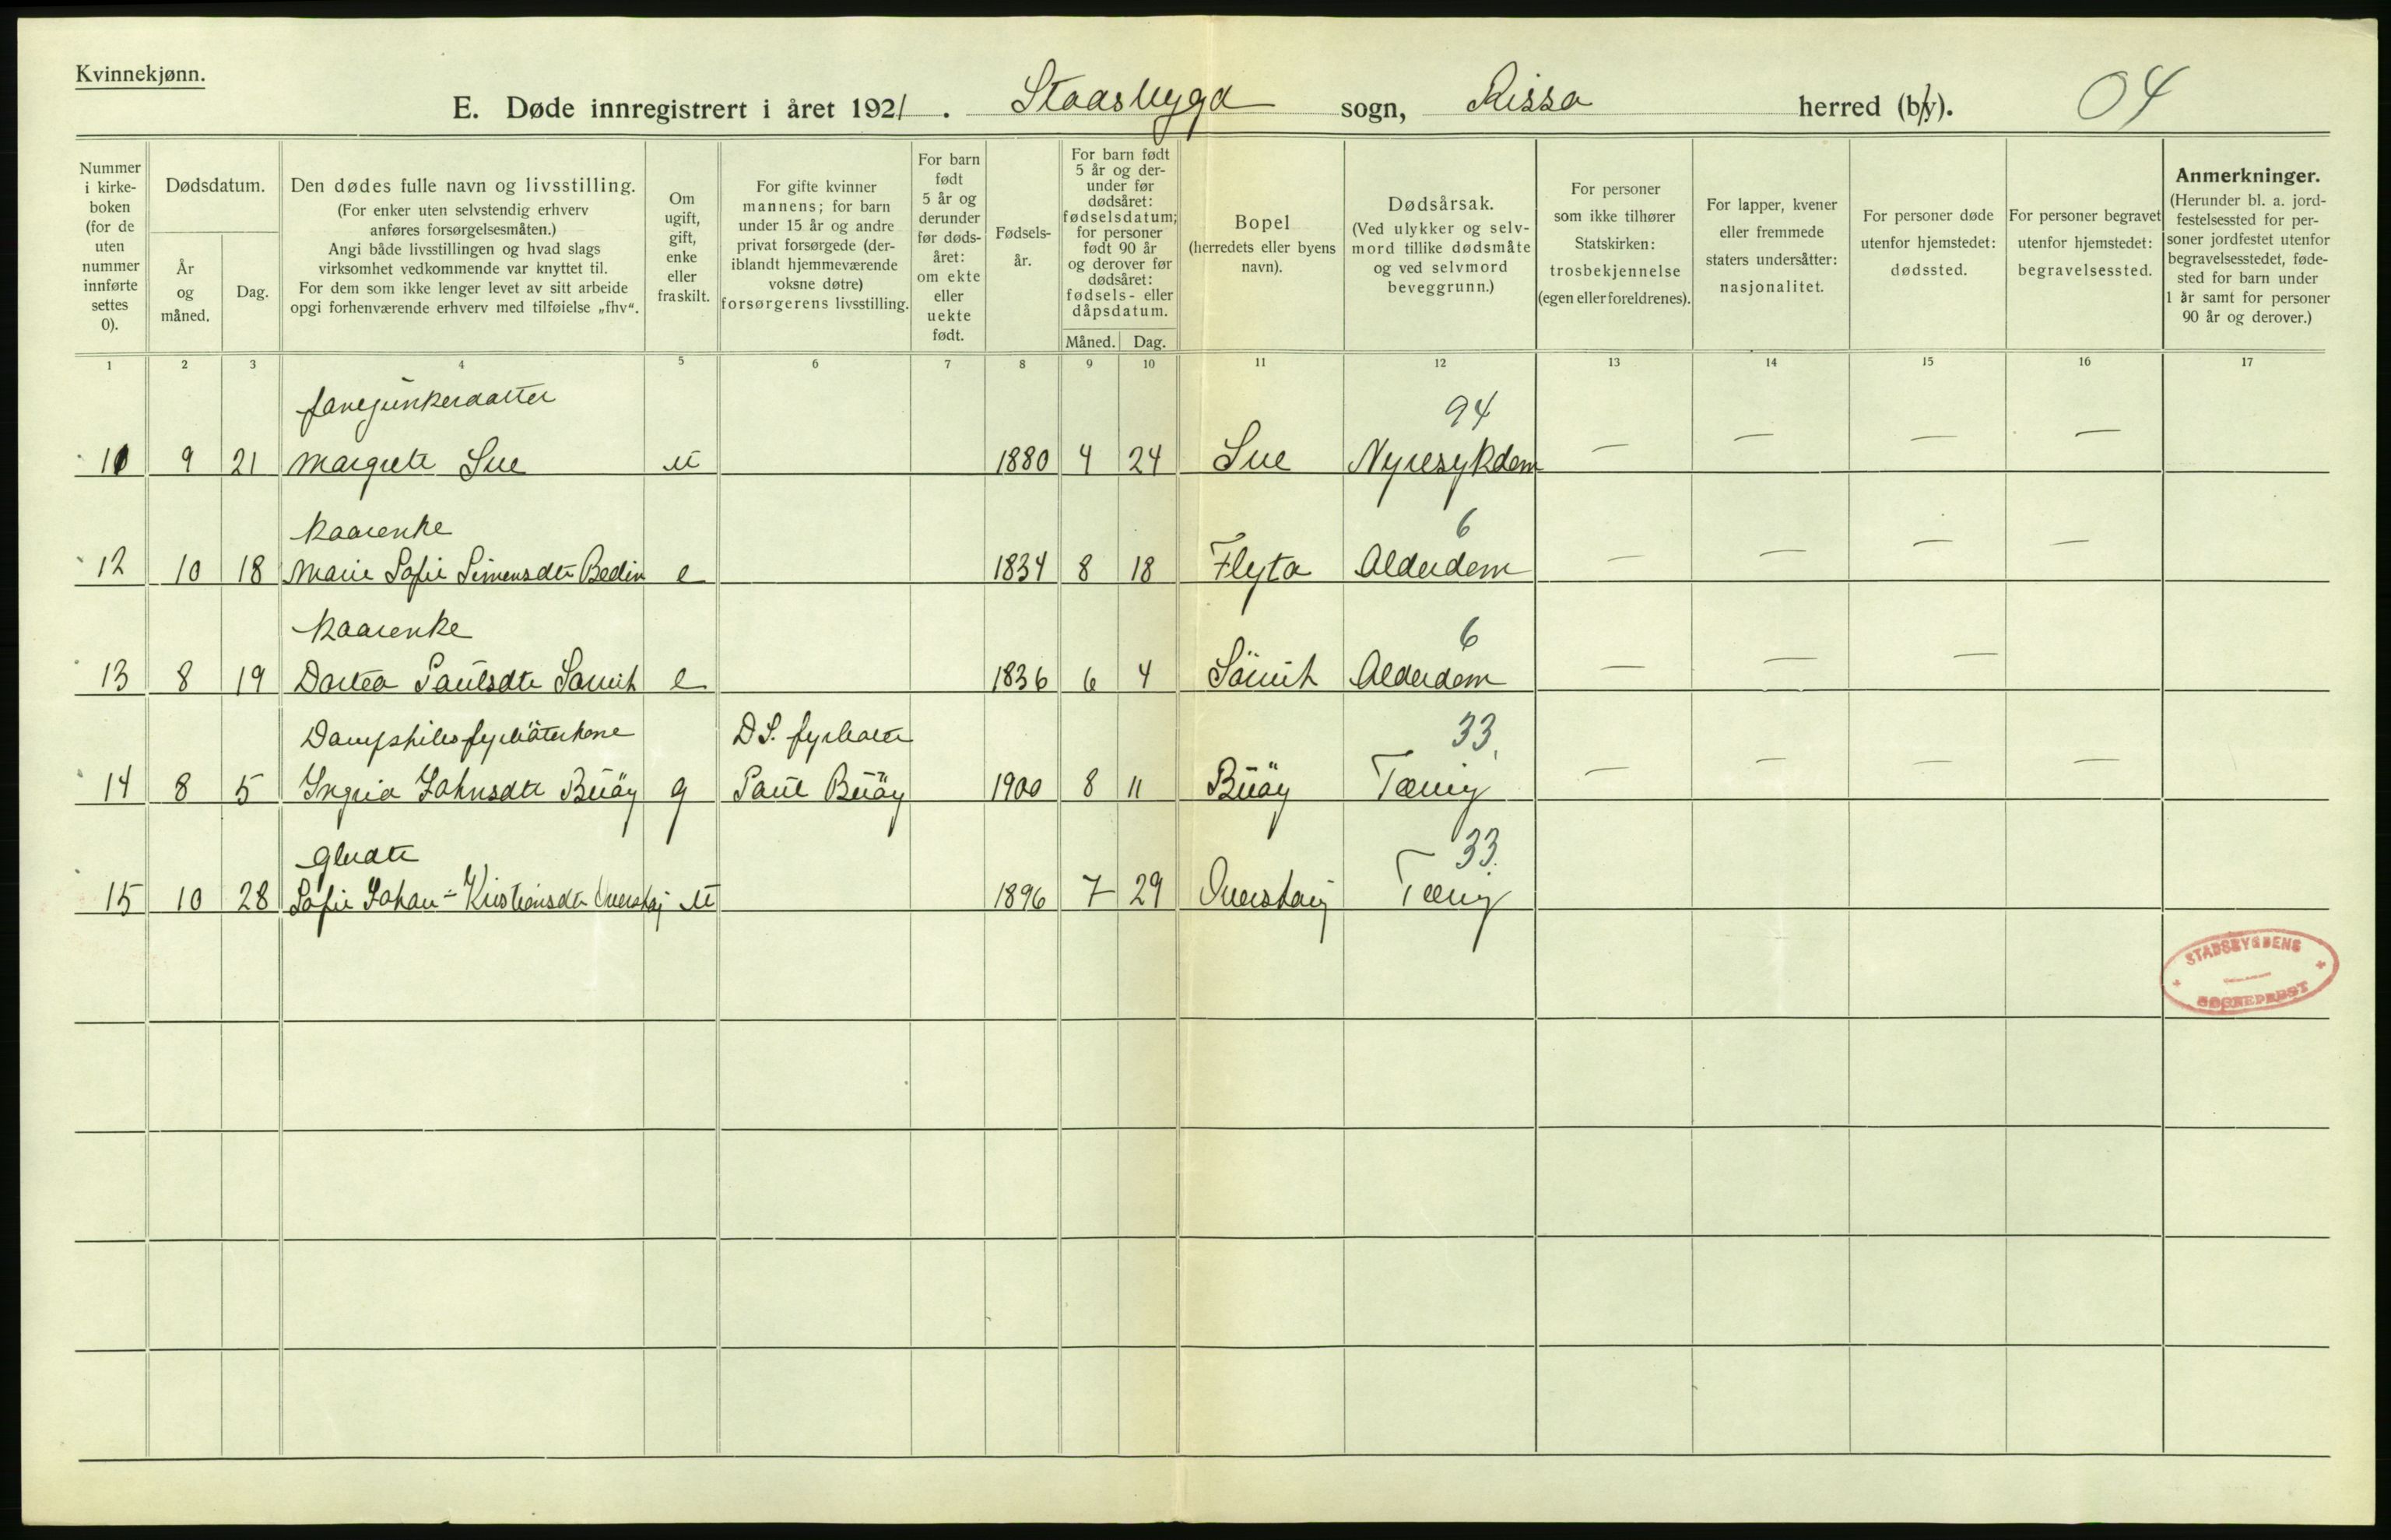 Kvinnekjønn.
E. Døde innregistrert i året 1921. Stadsbygd sogn, Rissa herred (by). 04
Nummer i kirke-boken (for de uten nummer innførte settes 0).
Dødsdatum.
År og måned.
Dag.
Den dødes fulle navn og livsstilling.
(For enker uten selvstendig erhverv
anføres forsørgelsesmåten.)
Angi både livsstillingen og hvad slags
virksomhet vedkommende var knyttet til.
For dem som ikke lenger levet av sitt arbeide
opgi forhenværende erhverv med tilføielse „fhv“.
Om ugift, gift, enke eller fraskilt.
For gifte kvinner
mannens; for barn
under 15 år og andre
privat forsørgede (der-
iblandt hjemmeværende
voksne døtre)
forsørgerens livsstilling.
For barn født 5 år og derunder før døds-året: om ekte eller uekte født.
Fødsels-år.
For barn født
5 år og der-
under før
dødsåret:
fødselsdatum;
for personer
født 90 år
og derover før
dødsåret:
fødsels- eller
dåpsdatum.
Måned. Dag.
Bopel
(herredets eller byens
navn).
Dødsårsak.
(Ved ulykker og selv-
mord tillike dødsmåte
og ved selvmord
beveggrunn.)
For personer
som ikke tilhører
Statskirken:
trosbekjennelse
(egen eller foreldrenes).
For lapper, kvener
eller fremmede
staters undersåtter:
nasjonalitet.
For personer døde
utenfor hjemstedet:
dødssted.
For personer begravet
utenfor hjemstedet:
begravelsessted.
Anmerkninger.
(Herunder bl. a. jord-
festelsessted for per-
soner jordfestet utenfor
begravelsesstedet, føde-
sted for barn under
1 år samt for personer
90 år og derover.)
1 2 3 4 5 6 7 8 9 10 11 12 13 14 15 16 17
fanejunkerdatter 94
9 21 Margrete Sue u 1880 4 24 Sue Nyresykdom — — — —
Kaarenke 6
12 10 18 Marie Sofie Simensdtr e 1834 8 18 Flyta Alderdom — — — —
Kaarenke 6
13 8 19 Dortea Paulsdtr e 1836 6 4 Alderdom — — —
Dampskibsfyrbøterkone D.S. fyrbøter 33
14 8 5 Ingrid Johnsdtr Buöy g Paul Buöy 1900 8 11 Buöy Tæring — — — —
33
15 10 28 Sofie Johan-Kristiansdtr u 1896 7 29 Tæring
STADSBYGDENS
SOGNEPREST